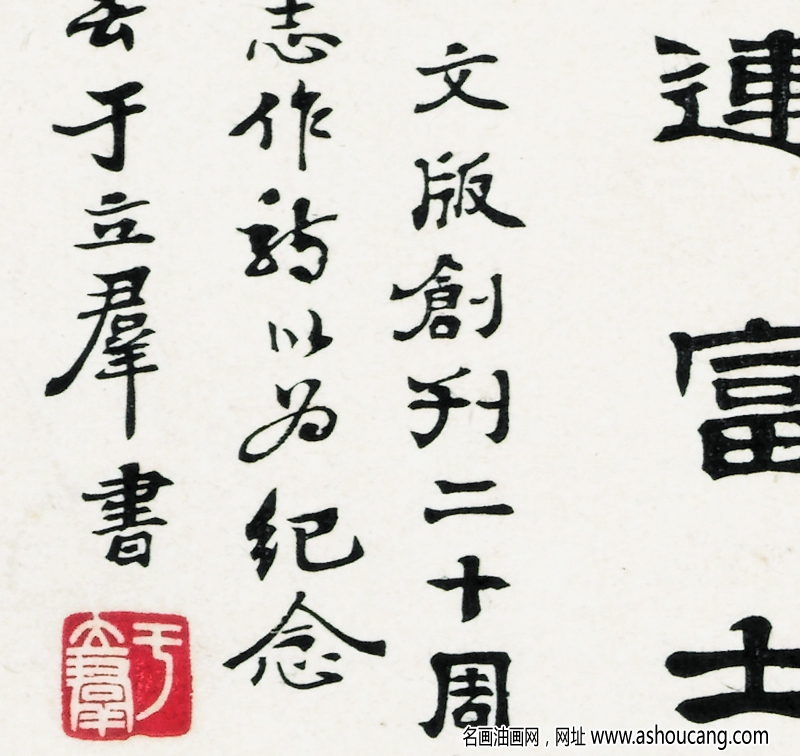 連富士
文版創刊二十周
志作詩以为紀念
于立羣書
于立羣
名画油画网，网址 www.ashoucang.com